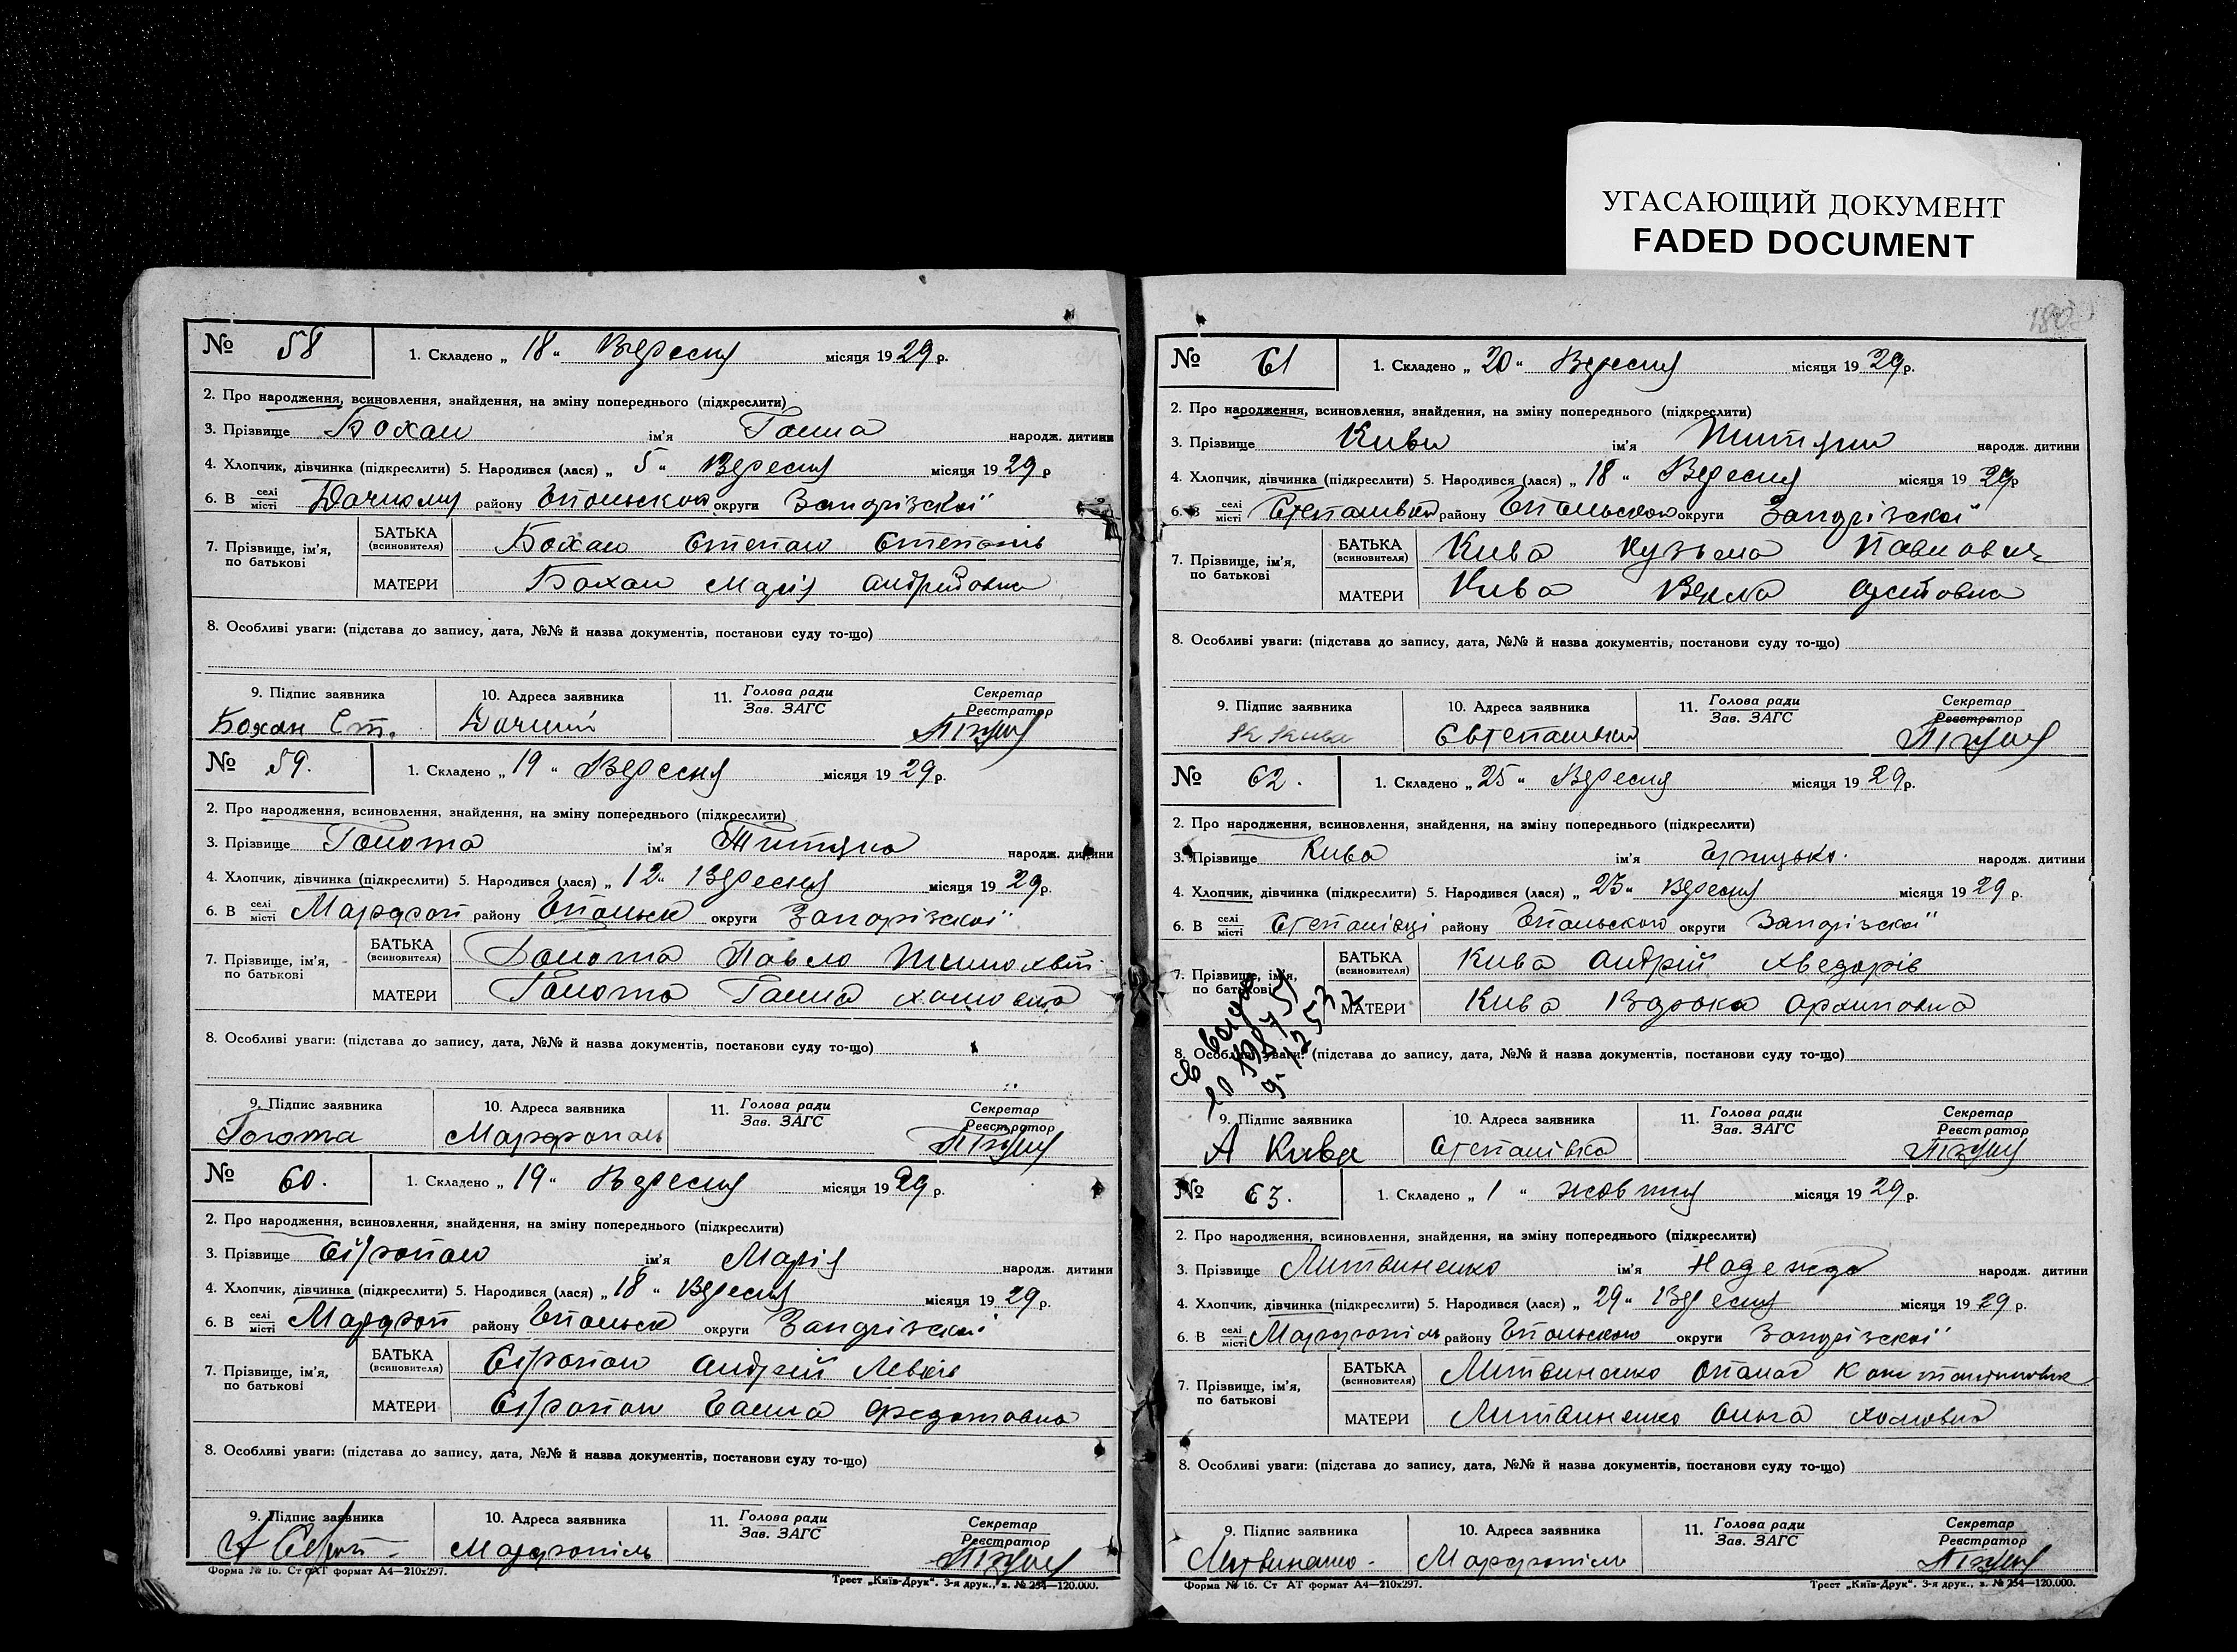 УГАСАЮЩИЙ ДОКУМЕНТ
FADED DOCUMENT
№ 58
1. Складено „ 18 “ Вересня місяця 1929 р.
2. Про народження, всиновлення, знайдення, на зміну попереднього (підкреслити)
3. Прізвище Бохан ім'я Ганна народж. дитини
4. Хлопчик, дівчинка (підкреслити) 5. Народився (лася) „ 5 “ Вересня місяця 1929 р
6. В селі місті району округи Запорізскої
7. Прізвище, ім'я, по батькові
БАТЬКА (всиновителя) Бохан Степан Степанів
МАТЕРИ Бохан Марія Андрійовна
8. Особливі уваги: (підстава до запису, дата, №№ й назва документів, постанови суду то-що)
9. Підпис заявника
10. Адреса заявника
11. Голова ради Зав. ЗАГС
Секретар Реєстратор
Бохан Ст.
№ 59.
1. Складено „ 19 “ Вересня місяця 1929 р.
2. Про народження, всиновлення, знайдення, на зміну попереднього (підкреслити)
3. Прізвище Голота ім'я Титяна народж. дитини
4. Хлопчик, дівчинка (підкреслити) 5. Народився (лася) „ 12 “ Вересня місяця 1929 р.
6. В селі місті району округи Запорізскої
7. Прізвище, ім'я, по батькові
БАТЬКА (всиновителя) Голота Павло
МАТЕРИ Голота Ганна
8. Особливі уваги: (підстава до запису, дата, №№ й назва документів, постанови суду то-що)
9. Підпис заявника
10. Адреса заявника
11. Голова ради Зав. ЗАГС
Секретар Реєстратор
Голота Марфополь
№ 60.
1. Складено „ 19 “ Вересня місяця 1929 р.
2. Про народження, всиновлення, знайдення, на зміну попереднього (підкреслити)
3. Прізвище ім'я Марія народж. дитини
4. Хлопчик, дівчинка (підкреслити) 5. Народився (лася) „ 18 “ Вересня місяця 1929 р.
6. В селі місті району округи Запорізскої
7. Прізвище, ім'я, по батькові
БАТЬКА (всиновителя) Андрій
МАТЕРИ Федотовна
8. Особливі уваги: (підстава до запису, дата, №№ й назва документів, постанови суду то-що)
9. Підпис заявника
10. Адреса заявника
11. Голова ради Зав. ЗАГС
Секретар Реєстратор
Марфопіль
Форма № 16. Ст АТ формат А4—210х297.
Трест „Київ-Друк“. 3-я друк., з. № 254—120.000.
№ 61
1. Складено „ 20 “ Вересня місяця 1929 р.
2. Про народження, всиновлення, знайдення, на зміну попереднього (підкреслити)
3. Прізвище Кива ім'я народж. дитини
4. Хлопчик, дівчинка (підкреслити) 5. Народився (лася) „ 18 “ Вересня місяця 1929 р
6. В селі місті району округи Запорізскої
7. Прізвище, ім'я, по батькові
БАТЬКА (всиновителя) Кива Кузьма Павлович
МАТЕРИ Кива Векла
8. Особливі уваги: (підстава до запису, дата, №№ й назва документів, постанови суду то-що)
9. Підпис заявника
10. Адреса заявника
11. Голова ради Зав. ЗАГС
Секретар Реєстратор
К Кива
№ 62.
1. Складено „ 25 “ Вересня місяця 1929 р.
2. Про народження, всиновлення, знайдення, на зміну попереднього (підкреслити)
3. Прізвище Кива ім'я народж. дитини
4. Хлопчик, дівчинка (підкреслити) 5. Народився (лася) „ 23 “ Вересня місяця 1929 р.
6. В селі місті Степанівці району округи Запорізскої
7. Прізвище, ім'я, по батькові
БАТЬКА (всиновителя) Кива Андрій Хведорів
МАТЕРИ Кива Архиповна
8. Особливі уваги: (підстава до запису, дата, №№ й назва документів, постанови суду то-що)
9. Підпис заявника
10. Адреса заявника
11. Голова ради Зав. ЗАГС
Секретар Реєстратор
А Кива Степанівка
№ 63.
1. Складено „ 1 “ жовтня місяця 1929 р.
2. Про народження, всиновлення, знайдення, на зміну попереднього (підкреслити)
3. Прізвище Литвиненко ім'я Надежда народж. дитини
4. Хлопчик, дівчинка (підкреслити) 5. Народився (лася) „ 29 “ Вересня місяця 1929 р.
6. В селі місті Марфопіль району округи Запорізскої
7. Прізвище, ім'я, по батькові
БАТЬКА (всиновителя) Литвиненко Опанас
МАТЕРИ Литвиненко Ольга
8. Особливі уваги: (підстава до запису, дата, №№ й назва документів, постанови суду то-що)
9. Підпис заявника
10. Адреса заявника
11. Голова ради Зав. ЗАГС
Секретар Реєстратор
Литвиненко Марфопіль
Форма № 16. Ст АТ формат А4—210х297.
Трест „Київ-Друк“. 3-я друк., з. № 254—120.000.